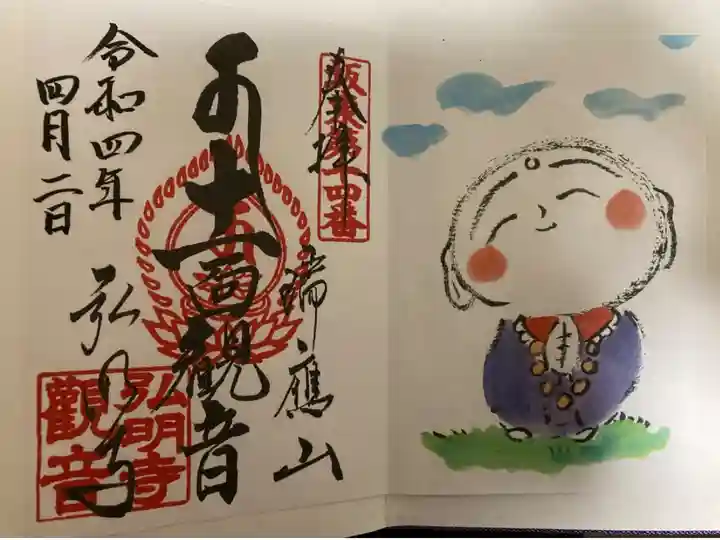 奉拝
坂東第十四番
瑞應山
十一面観音
弘明寺
弘明寺
觀音
令和四年
四月二日